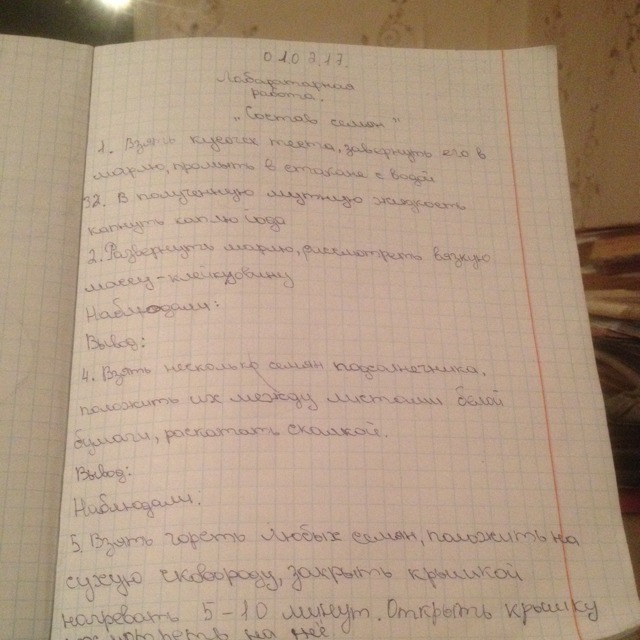 01.03.17.
Лабораторная
работа.
"Состав семян"
1. Взять кусочек теста, завернуть его в
марлю, промыть в стакане с водой
32. В полученную мутную жидкость
капнуть каплю йода
2. Развернуть марлю, рассмотреть вязкую
массу-клейковину
Наблюдали:
Вывод:
4. Взять несколько семян подсолнечника,
положить их между листами белой
бумаги, раскатать скалкой.
Вывод:
Наблюдали:
5. Взять горсть любых семян, положить на
сухую сковороду, закрыть крышкой
нагревать 5-10 минут. Открыть крышку
на неё.